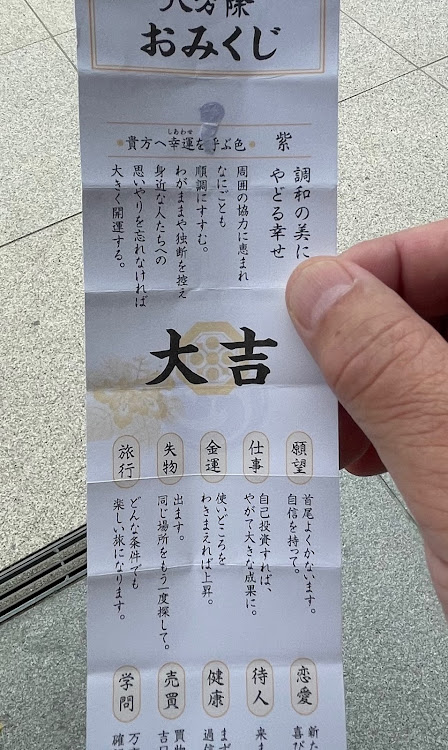 八方除
おみくじ
貴方へ幸運を呼ぶ色
しあわせ
紫
調和の美に
やどる幸せ
周囲の協力に恵まれ
なにごとも
順調にすすむ。
わがままや独断を控え
身近な人たちへの
思いやりを忘れなければ
大きく開運する。
大吉
願望
首尾よくかないます。
自信を持って。
仕事
自己投資すれば、
やがて大きな成果に。
金運
使いどころを
わきまえれば上昇。
失物
出ます。
同じ場所をもう一度探して。
旅行
どんな条件でも
楽しい旅になります。
恋愛
新た
喜び
待人
来
健康
まず
過信
売買
買物
吉日
学問
万
確